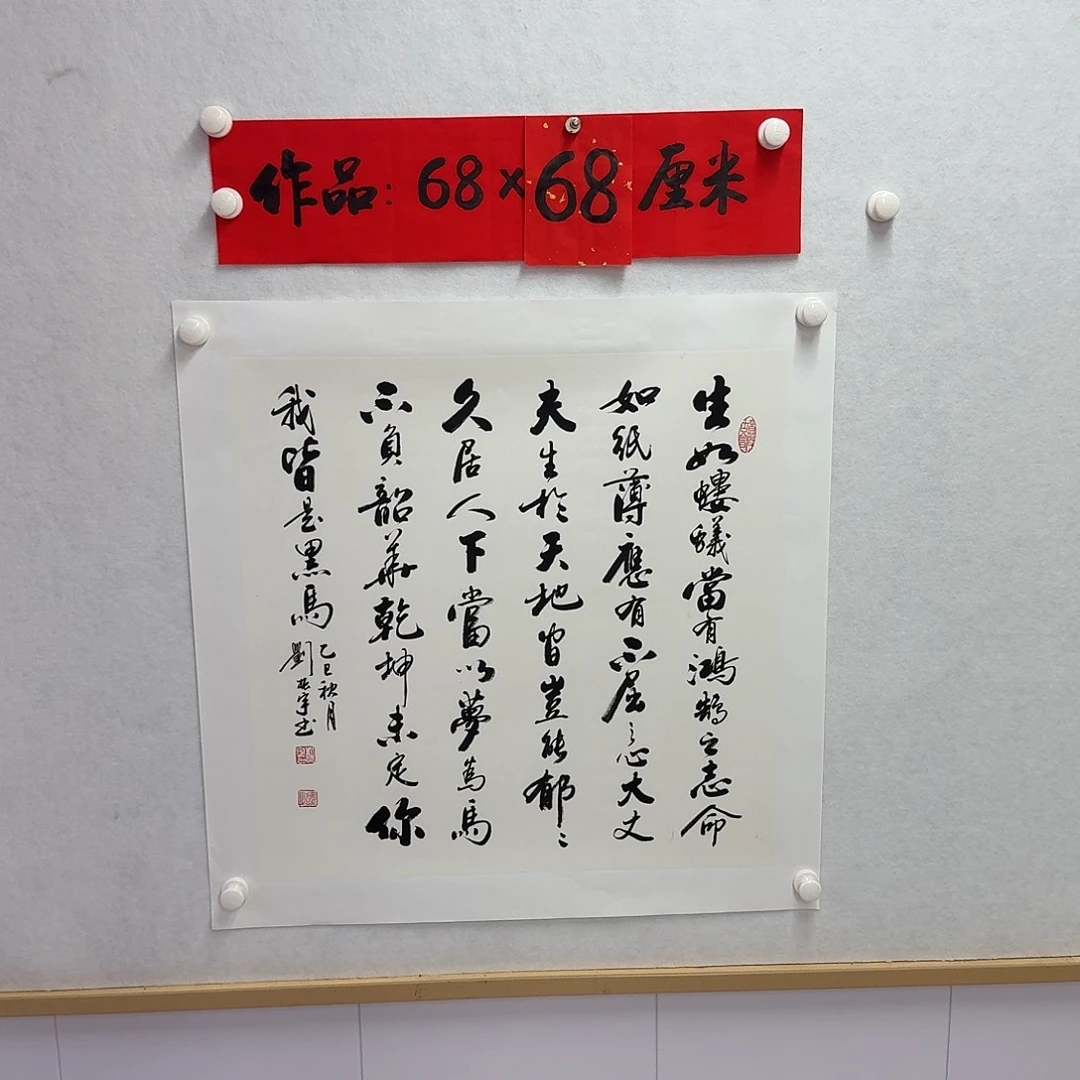 作品：68×68厘米
生如螻蟻當有鴻鵠之志命
如紙薄應有不屈之心大丈
夫生於天地間豈能郁々
久居人下當以夢為馬
不負韶華乾坤未定你
我皆是黑馬
乙巳秋月
劉亞宇书